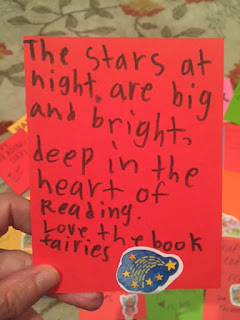 The stars at
night, are big
and bright,
deep in the
heart of
Reading.
Love the book
fairies